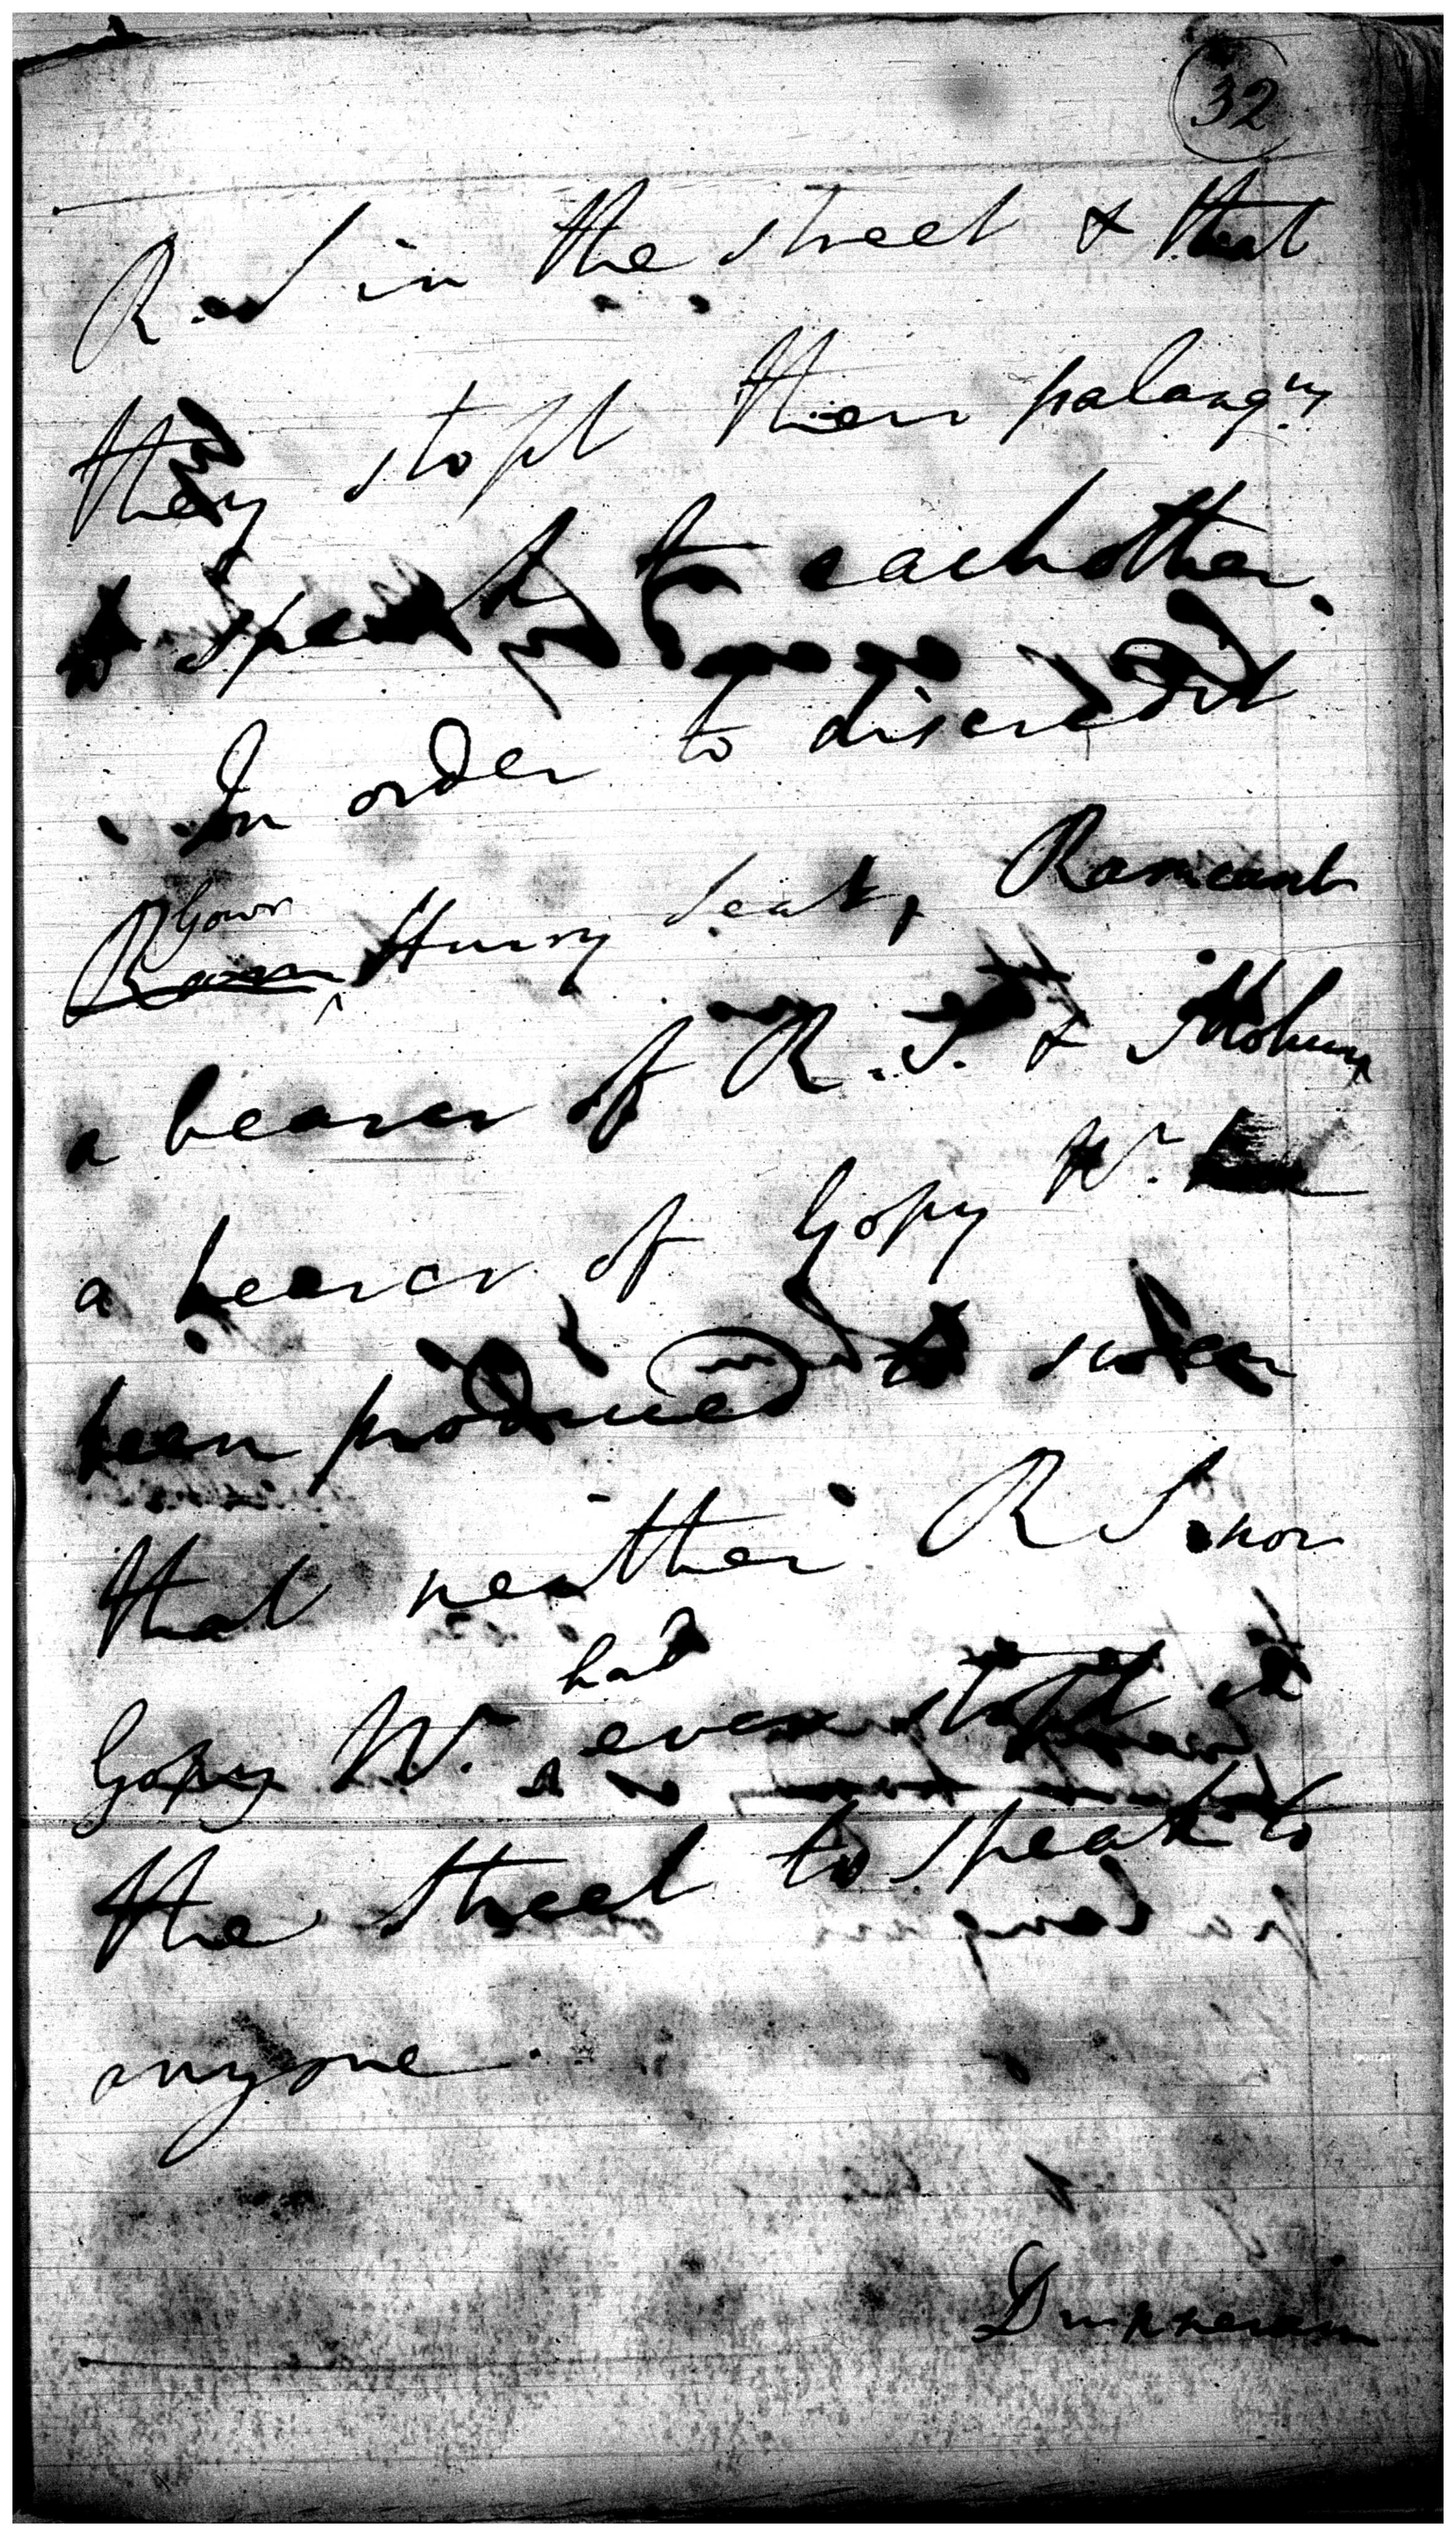 32
R. S in the street & that
they stopt their palanqns
to speak to each other.
In order to discredit
Gowr
Ram Hurry Seat, Ramcant
a bearer of R. S. & Mohun
a bearer of Gopy Nr.
been produced sworn
that neither R S. nor
had
Gopy Nr. even stopt in
the street to speak to
anyone.